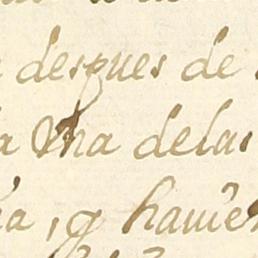 despues de
a Vna delas
ia, y hauie